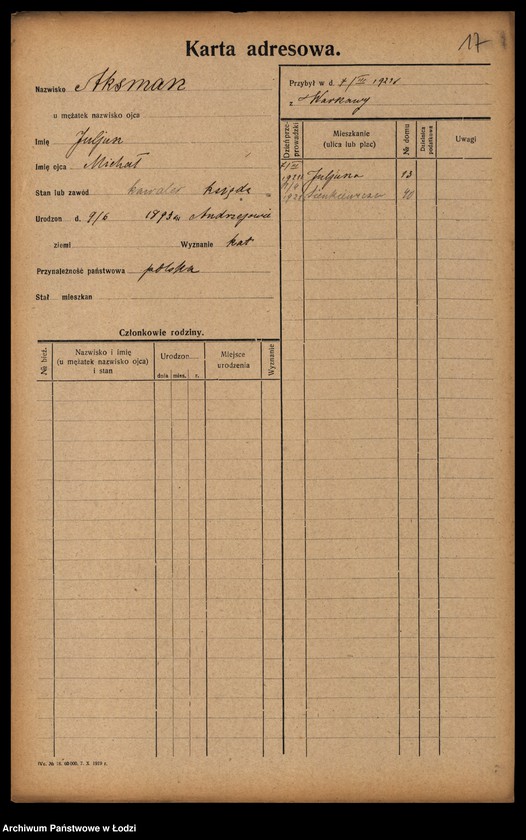 17
Karta adresowa.
Nazwisko Aksman
u mężatek nazwisko ojca
Imię Juljan
Imię ojca Michał
Stan lub zawód kawaler
Urodzon d. 9/6 1893 w Andrzejowie
ziemi Wyznanie kat
Przynależność państwowa polska
Stał mieszkan
Przybył w d.
z Warszawy
Dzień przeprowadzki
Mieszkanie (ulica lub plac)
№ domu
Dzielnica podatkowa
Uwagi
Juljusza
Sienkiewicza
Członkowie rodziny.
№ bież.
Nazwisko i imię
(u mężatek nazwisko ojca)
i stan
Urodzon
dnia mies. r.
Miejsce
urodzenia
Wyznanie
Archiwum Państwowe w Łodzi